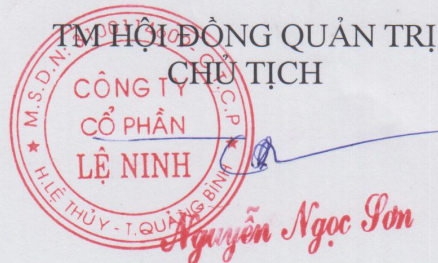 TM HỘI ĐỒNG QUẢN TRỊ
CHỦ TỊCH
CÔNG TY
CỔ PHẦN
LỆ NINH
H.LỆ THỦY - T.QUẢNG BÌNH
Nguyễn Ngọc Sơn